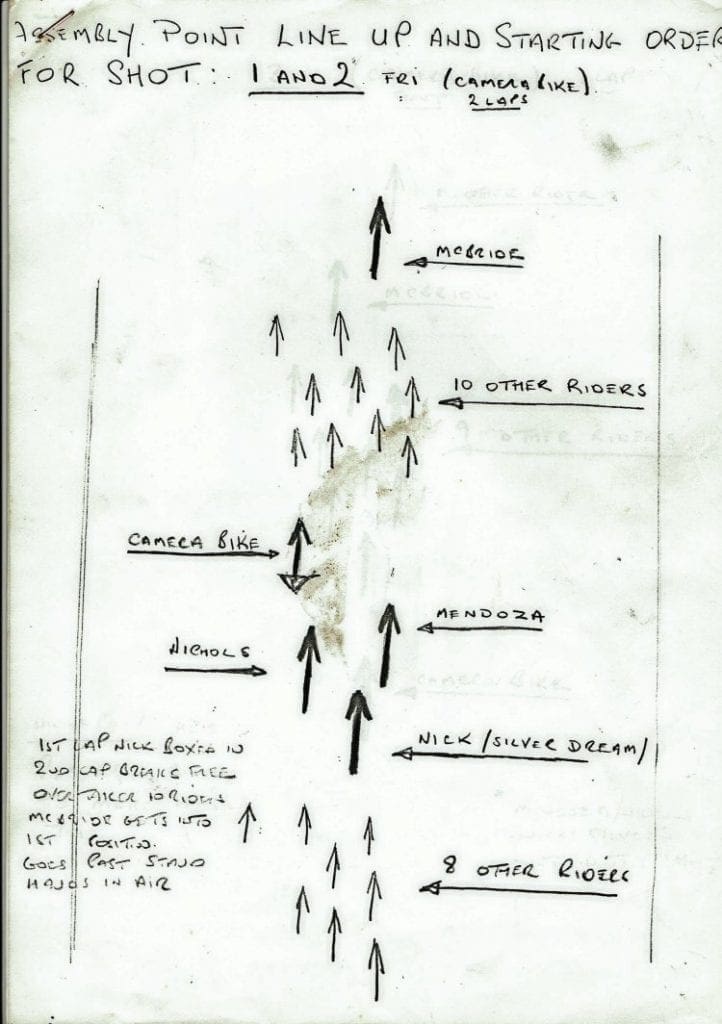 ASSEMBLY POINT LINE UP AND STARTING ORDER
FOR SHOT: 1 AND 2 FRI (CAMERA BIKE)
2 LAPS
MCBRIDE
10 OTHER RIDERS
CAMERA BIKE
MENDOZA
NICHOLS
NICK/SILVER DREAM/
1ST LAP NICK BOXED IN
2ND LAP BREAKS FREE
OVERTAKES 10 RIDERS
MCBRIDE GETS INTO
1ST
GOES PAST STAND
HANDS IN AIR
8 OTHER RIDERS
MCBRIDE
9 OTHER RIDERS
CAMERA BIKE